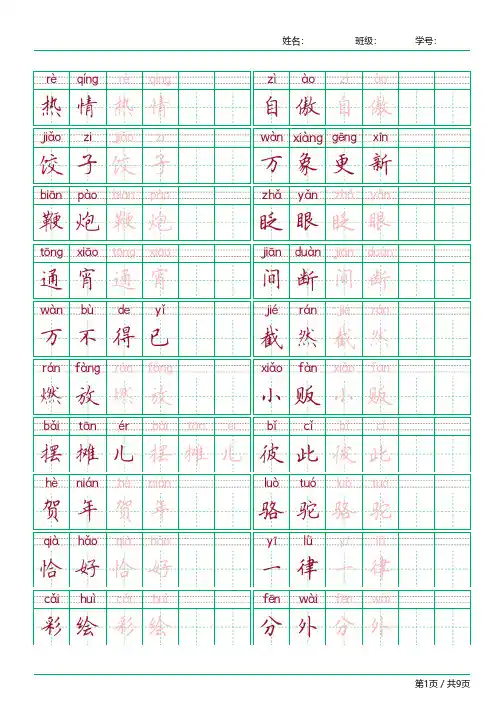 姓名: 班级: 学号:
rè qíng rè qíng zì ào zì ào
热情热情 自傲自傲
jiǎo zi jiǎo zi wàn xiàng gēng xīn
饺子饺子 万象更新
biān pào biān pào zhǎ yǎn zhǎ yǎn
鞭炮鞭炮 眨眼眨眼
tōng xiāo tōng xiāo jiān duàn jiān duàn
通宵通宵 间断间断
wàn bù de yǐ jié rán jié rán
万不得已 截然截然
rán fàng rán fàng xiǎo fàn xiǎo fàn
燃放燃放 小贩小贩
bǎi tān ér bǎi tān ér bǐ cǐ bǐ cǐ
摆摊儿摆摊儿 彼此彼此
hè nián hè nián luò tuó luò tuó
贺年贺年 骆驼骆驼
qià hǎo qià hǎo yī lǜ yī lǜ
恰好恰好 一律一律
cǎi huì cǎi huì fēn wài fēn wài
彩绘彩绘 分外分外
第1页 / 共9页